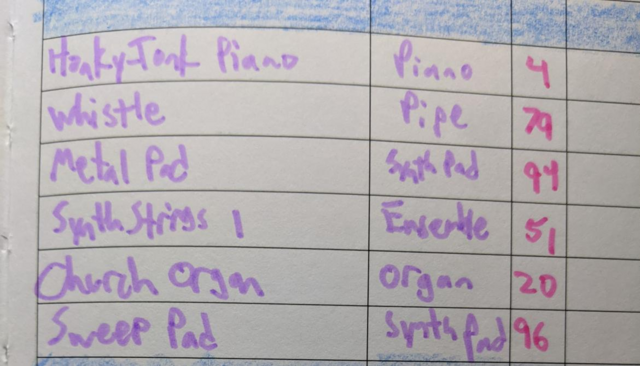 Honky-Tonk Piano Piano 4
Whistle Pipe 79
Metal Pad Synth Pad 94
Synth Strings 1 Ensemble 51
Church Organ Organ 20
Sweep Pad Synth Pad 96